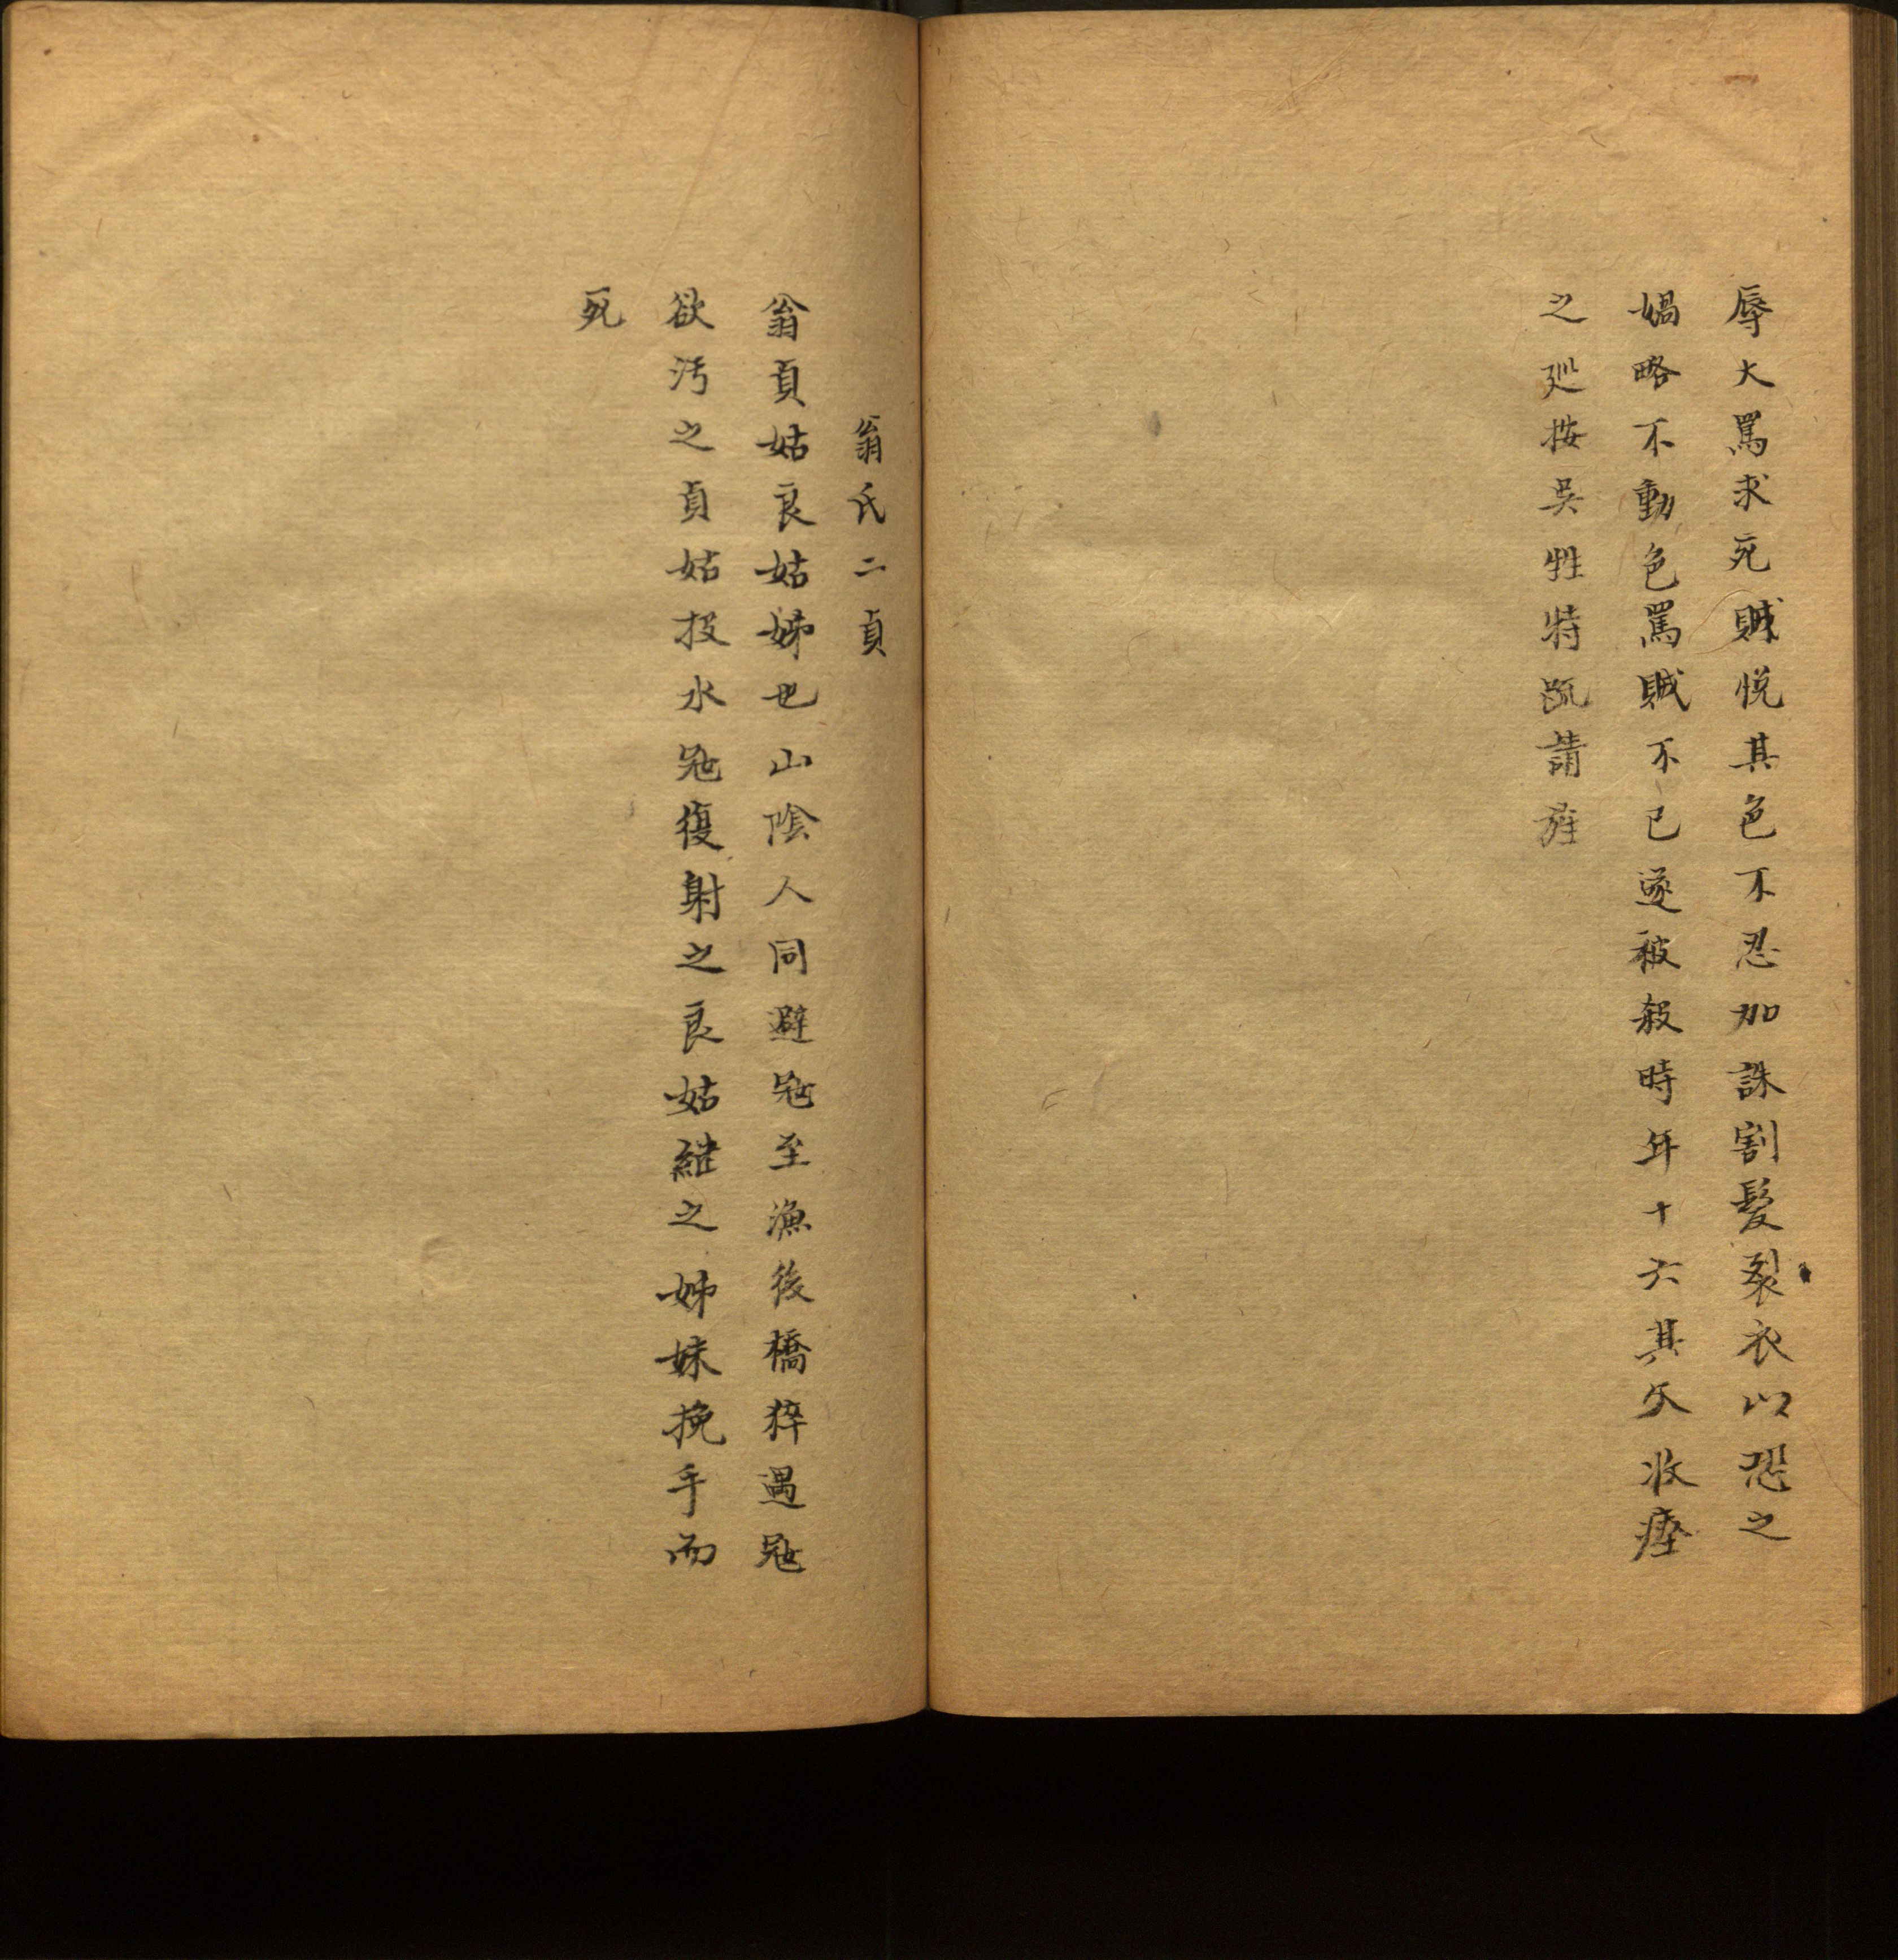 辱大罵求死賊悅其色不忍加誅割髮裂衣以恐之
媧略不動色罵賊不已遂被殺時年十六其父收瘞
之廵按吳牲特疏請旌
翁氏二貞
翁貞姑良姑姊也山陰人同避冦至漁後橋猝遇冦
欲汚之貞姑投水冦復射之良姑繼之姊妹挽手而
死